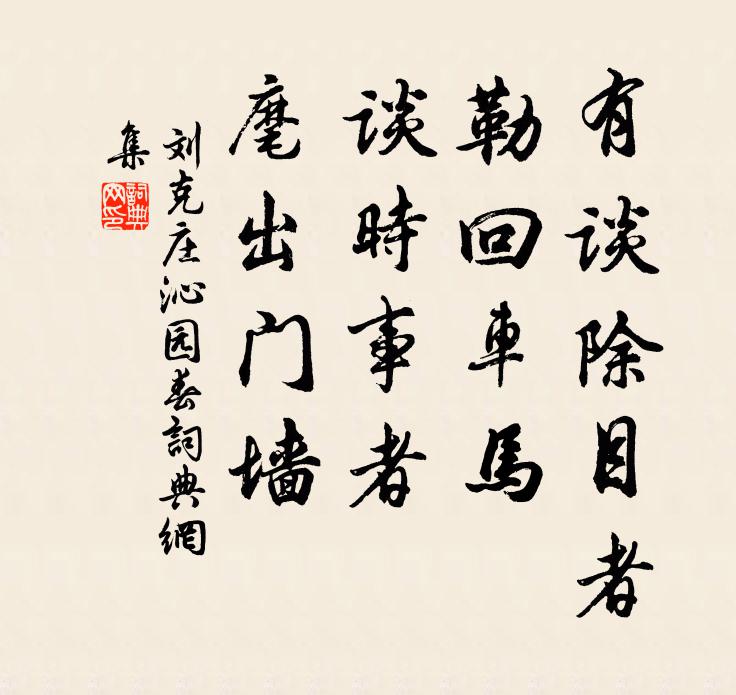 有談除目者
勒回車馬
談時事者
麾出门墙
刘克庄沁园春詞典網
集
詞典
网印